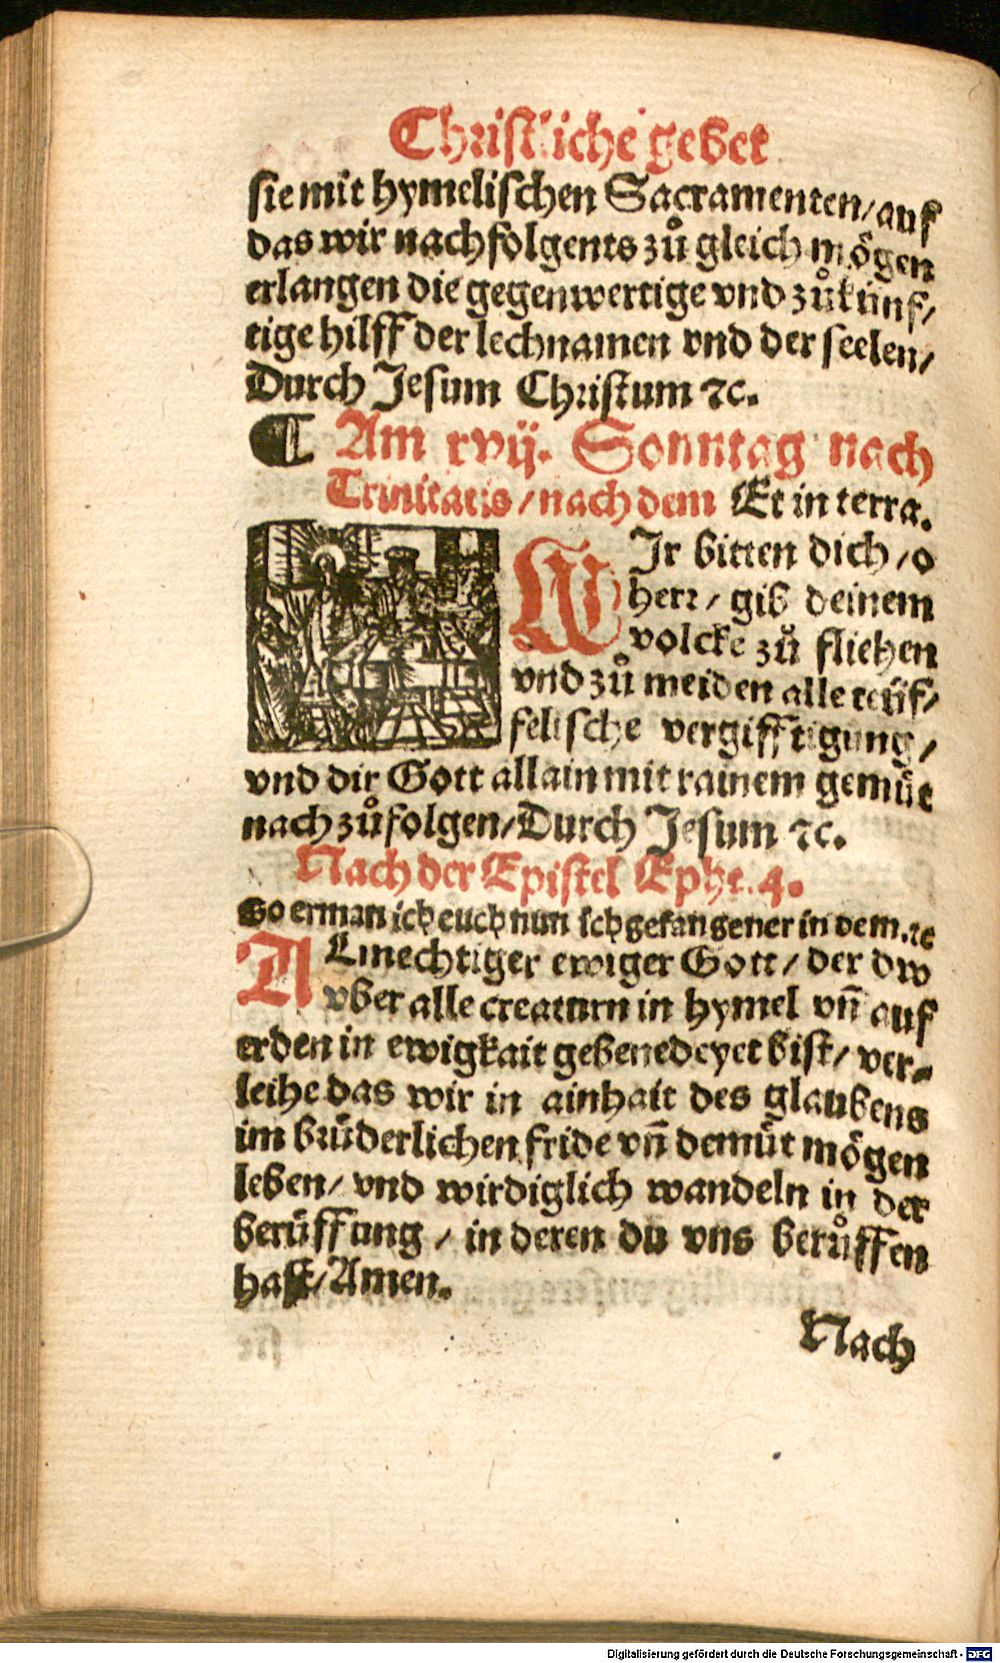 Christliche gebet
sie mit hymelischen Sacramenten/ auf
das wir nachfolgents zů gleich mögen
erlangen die gegenwertige vnd zůkünf/
tige hilff der lechnamen vnd der seelen/
Durch Jesum Christum ⁊c.
¶ Am xvij. Sonntag nach
Trinitatis / nach dem Et in terra.
WIr bitten dich / o
herr / gib deinem
volcke zů fliehen
vnd zů meiden alle teüf/
felische vergifftigung /
vnd dir Gott allain mit rainem gemüt
nach zůfolgen/ Durch Jesum ⁊c.
Nach der Epistel Ephe. 4.
So erman ich euch nun ich gefangener in dem. ⁊c
ALmechtiger ewiger Gott / der dw
vber alle creaturn in hymel vn̄ auf
erden in ewigkait gebenedeyet bist/ ver-
leihe das wir in ainhait des glaubens
im brüderlichen fride vn̄ demüt mögen
leben/ vnd wirdiglich wandeln in der
berüffung / in deren du vns berůffen
hast/ Amen.
Nach
Digitalisierung gefördert durch die Deutsche Forschungsgemeinschaft - DFG